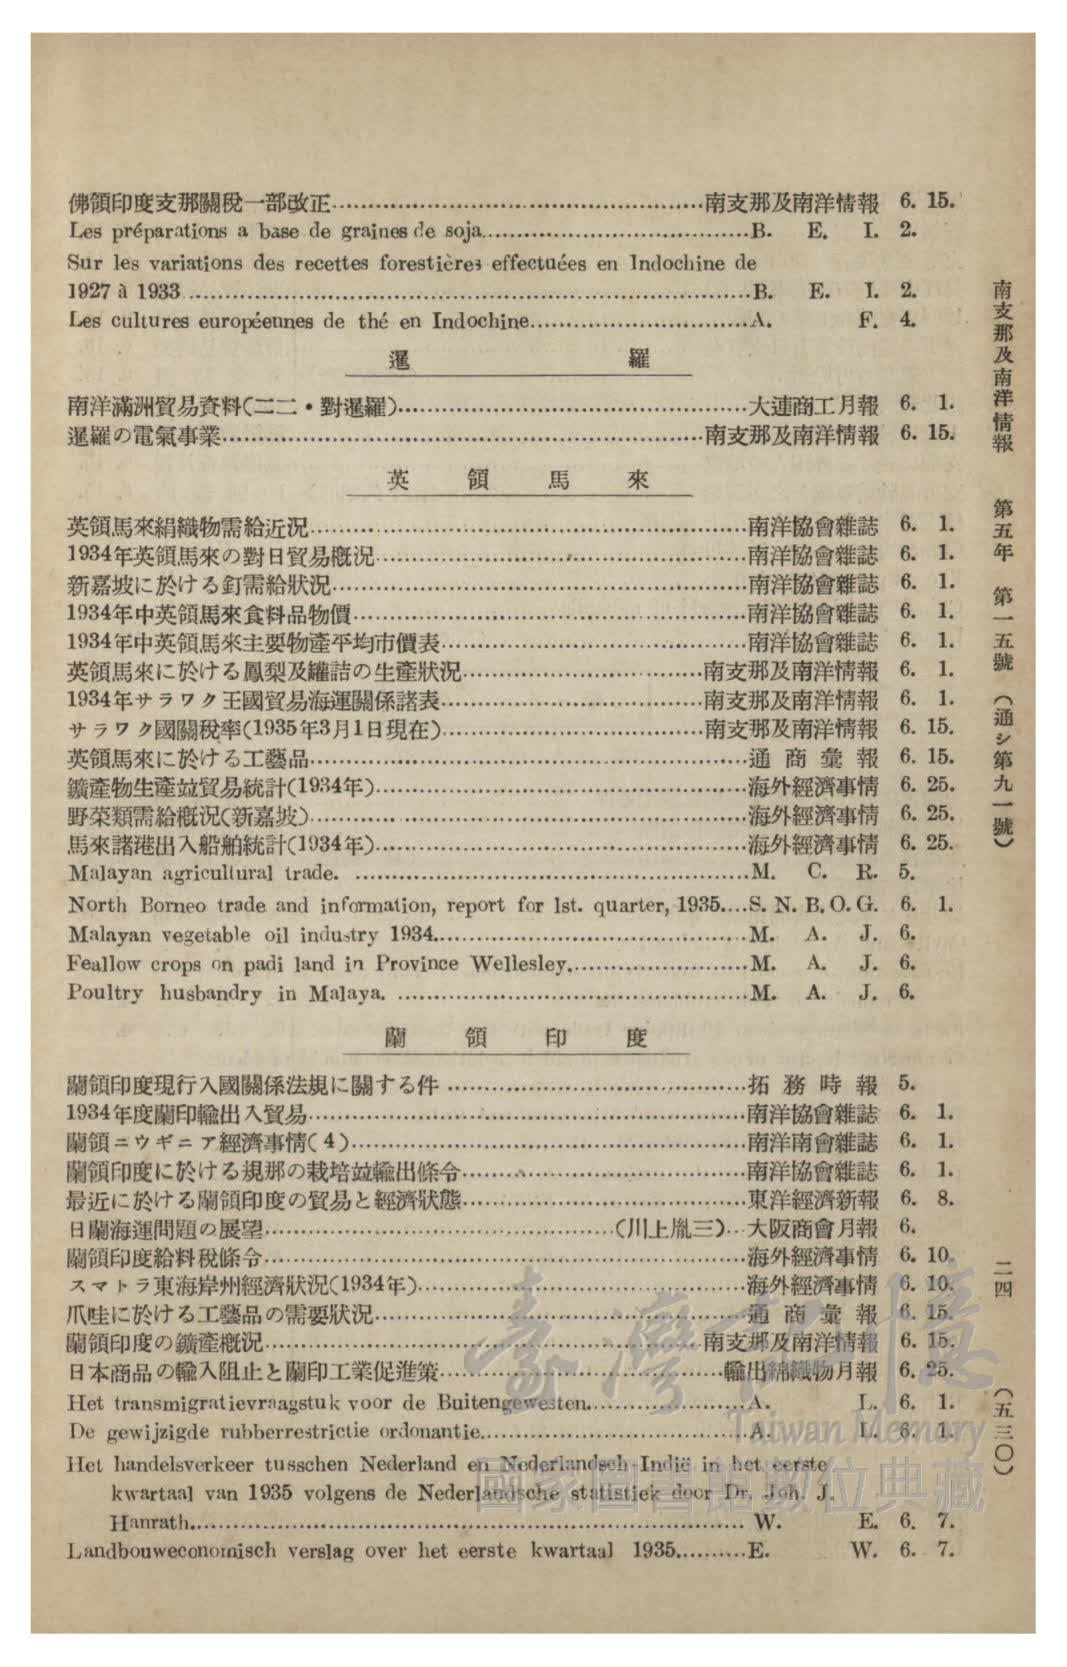 佛領印度支那關稅一部改正……南支那及南洋情報 6. 15.
Les préparations a base de graines de soja……B. E. I. 2.
Sur les variations des recettes forestières effectuées en Indochine de
1927 à 1933……B. E. I. 2.
Les cultures européennes de thé en Indochine……A. F. 4.
暹羅
南洋滿洲貿易資料(二二・對暹羅)……大連商工月報 6. 1.
暹羅の電氣事業……南支那及南洋情報 6. 15.
英領馬來
英領馬來絹織物需給近況……南洋協會雜誌 6. 1.
1934年英領馬來の對日貿易槪況……南洋協會雜誌 6. 1.
新嘉坡に於ける釘需給狀況……南洋協會雜誌 6. 1.
1934年中英領馬來食料品物價……南洋協會雜誌 6. 1.
1934年中英領馬來主要物產平均市價表……南洋協會雜誌 6. 1.
英領馬來に於ける鳳梨及罐詰の生產狀況……南支那及南洋情報 6. 1.
1934年サラワク王國貿易海運關係諸表……南支那及南洋情報 6. 1.
サラワク國關稅率(1935年3月1日現在)……南支那及南洋情報 6. 15.
英領馬來に於ける工藝品……通商彙報 6. 15.
鑛產物生產竝貿易統計(1934年)……海外經濟事情 6. 25.
野菜類需給槪況(新嘉坡)……海外經濟事情 6. 25.
馬來諸港出入船舶統計(1934年)……海外經濟事情 6. 25.
Malayan agricultural trade. ……M. C. R. 5.
North Borneo trade and information, report for 1st. quarter, 1935....S. N. B. O. G. 6. 1.
Malayan vegetable oil industry 1934……M. A. J. 6.
Feallow crops on padi land in Province Wellesley……M. A. J. 6.
Poultry husbandry in Malaya. ……M. A. J. 6.
蘭領印度
蘭領印度現行入國關係法規に關する件……拓務時報 5.
1934年度蘭印輸出入貿易……南洋協會雜誌 6. 1.
蘭領ニウギニア經濟事情(4)……南洋南會雜誌 6. 1.
蘭領印度に於ける規那の栽培竝輸出條令……南洋協會雜誌 6. 1.
最近に於ける蘭領印度の貿易と經濟狀態……東洋經濟新報 6. 8.
日蘭海運問題の展望……(川上胤三)…大阪商會月報 6.
蘭領印度給料稅條令……海外經濟事情 6. 10.
スマトラ東海岸州經濟狀況(1934年)……海外經濟事情 6. 10.
爪哇に於ける工藝品の需要狀況……通商彙報 6. 15.
蘭領印度の鑛產槪況……南支那及南洋情報 6. 15.
日本商品の輸入阻止と蘭印工業促進策……輸出綿織物月報 6. 25.
Het transmigratievraagstuk voor de Buitengewesten……A. L. 6. 1.
De gewijzigde rubberrestrictie ordonantie……A. L. 6. 1.
Het handelsverkeer tusschen Nederland en Nederlandsch-Indië in het eerste
kwartaal van 1935 volgens de Nederlandsche statistiek door Dr. Joh. J.
Hanrath……W. E. 6. 7.
Landbouweconomisch verslag over het eerste kwartaal 1935……E. W. 6. 7.
南支那及南洋情報 第五年 第一五號 (通シ第九一號)
二四
(五三〇)
臺灣記憶
Taiwan Memory
國家圖書館數位典藏